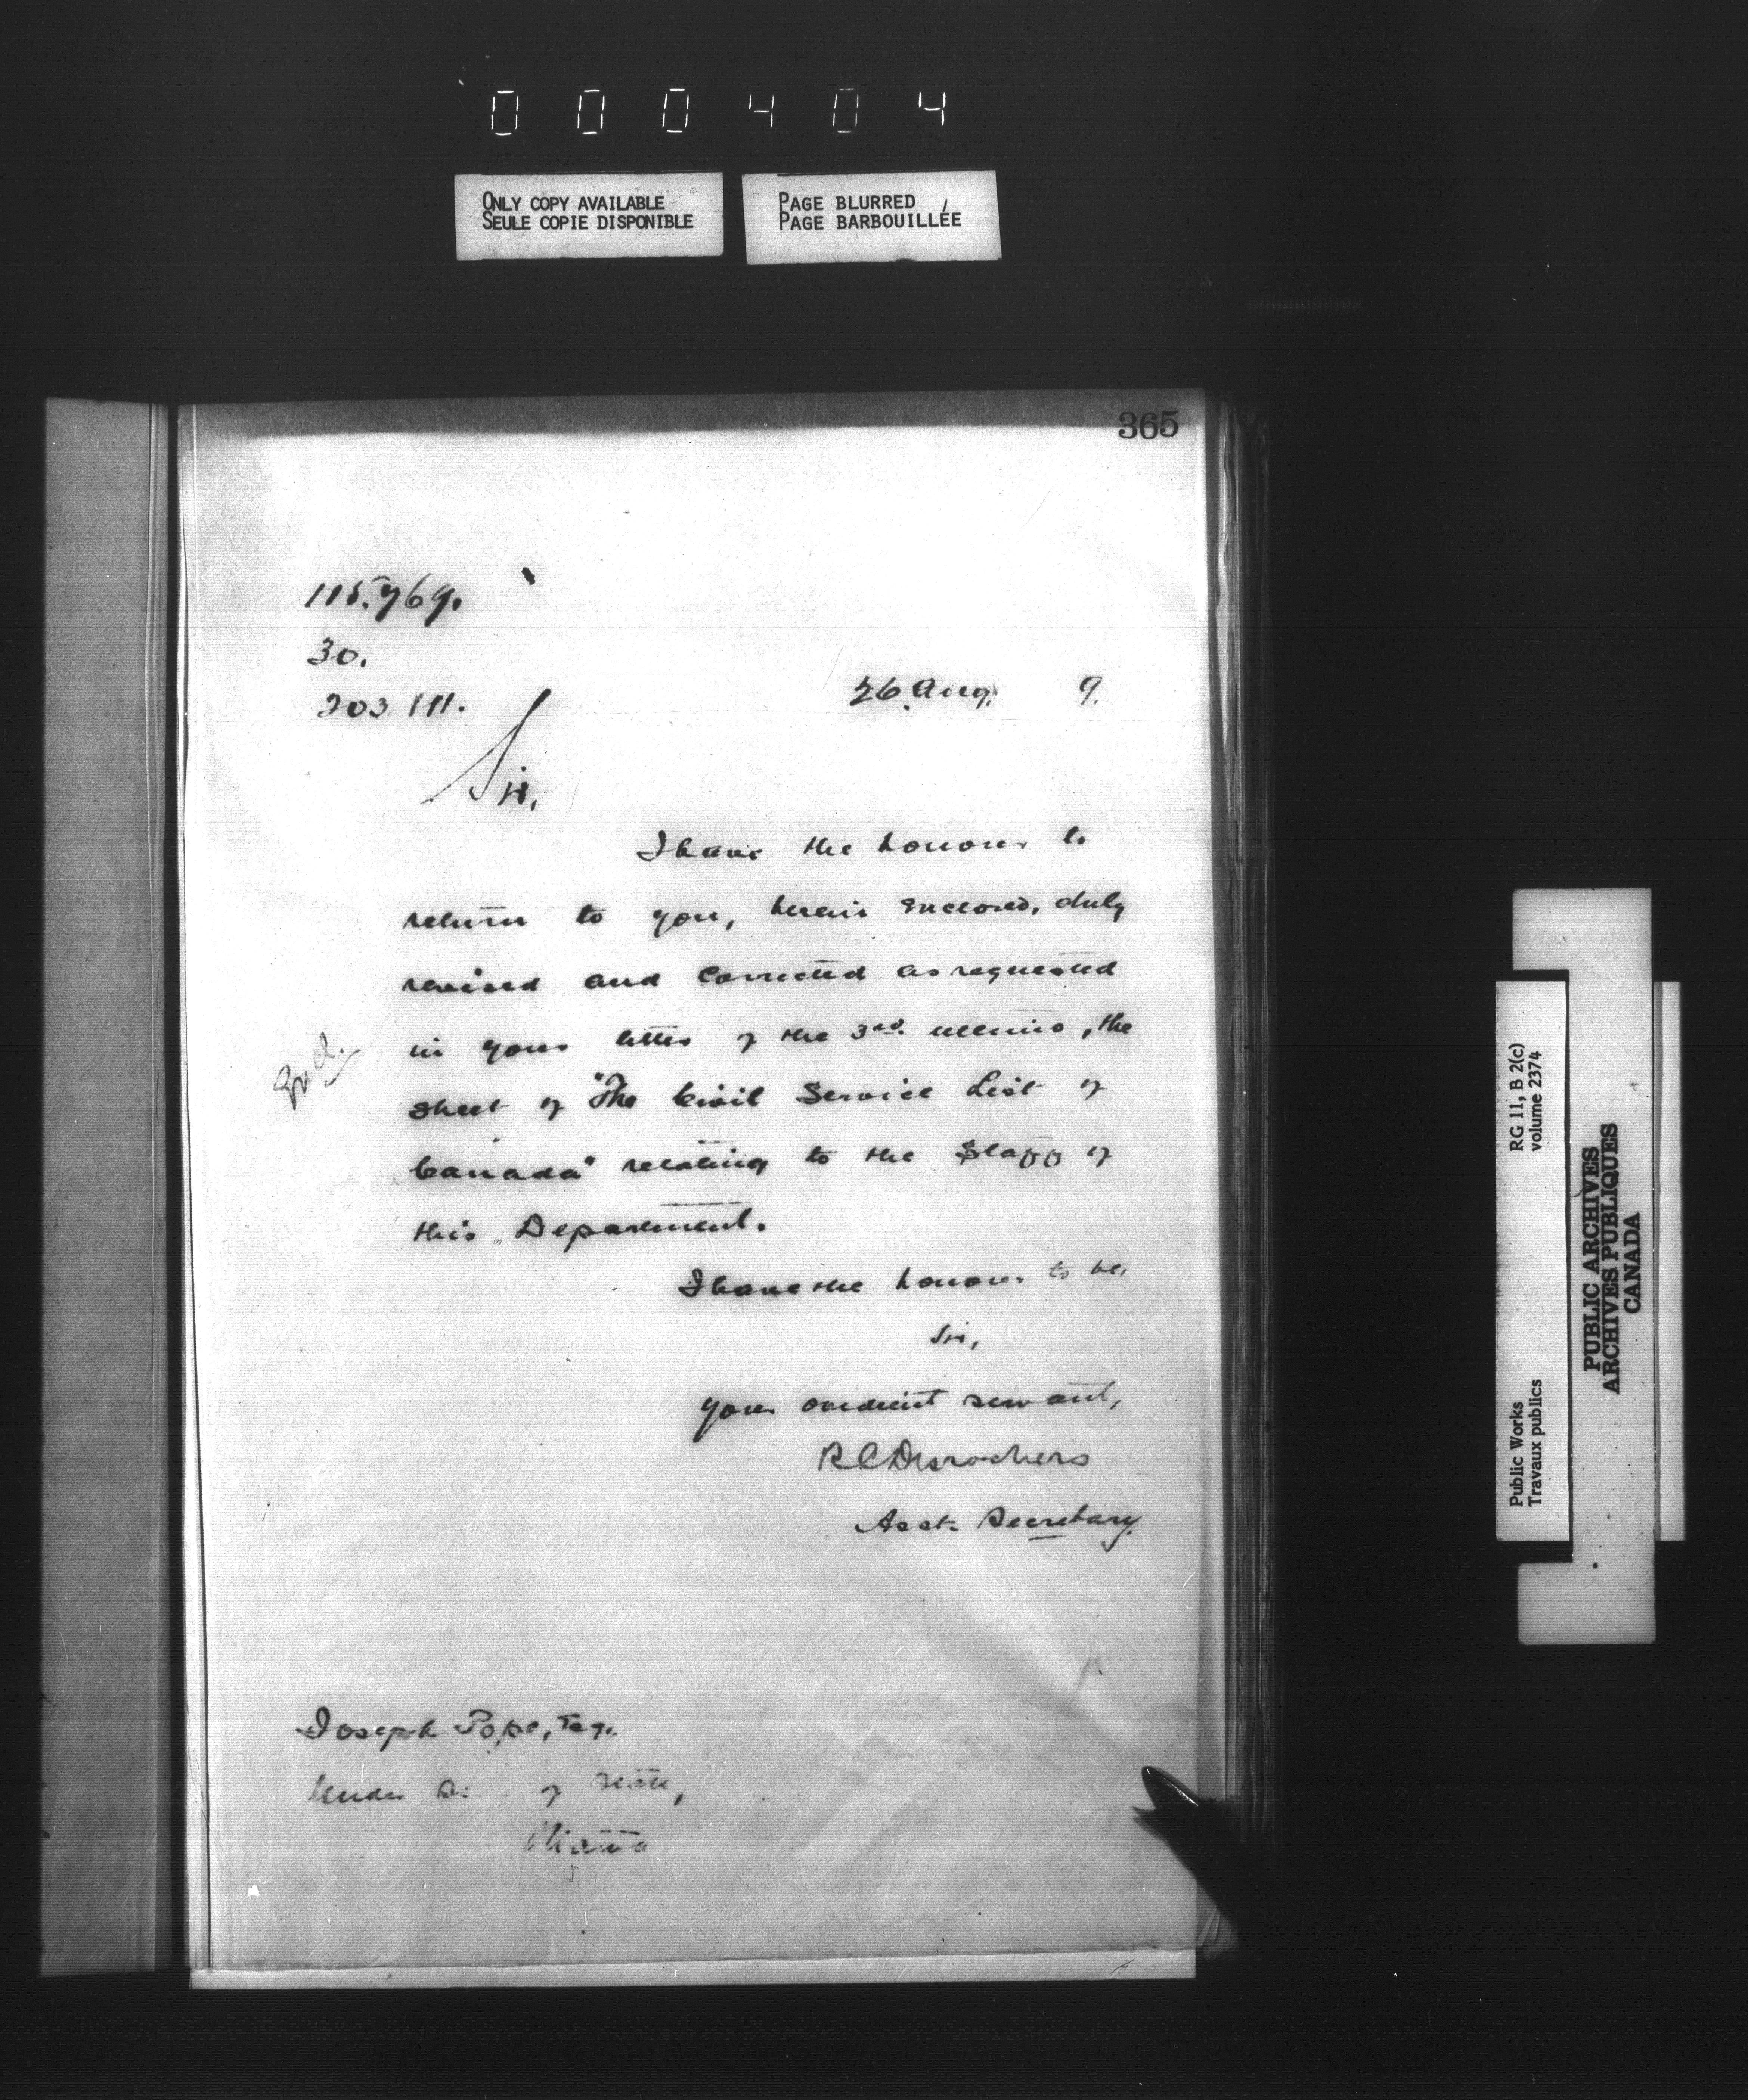 000404
ONLY COPY AVAILABLE
SEULE COPIE DISPONIBLE
PAGE BLURRED
PAGE BARBOUILLÉE
365
115.769.
30.
203 111.
26 Aug. 9.
Sir,
I have the honour to
return to you, herein enclosed, duly
revised and corrected as requested
in your letter of the 3rd. ultimo, the
Encl.
sheet of "The Civil Service List of
Canada" relating to the Staff of
this Department.
I have the honour to be,
Sir,
your obedient servant,
R C Desrochers
Asst. Secretary.
Joseph Pope, Esq.
Under of State,
Ottawa
Public Works
Travaux publics
RG 11, B 2(c)
volume 2374
PUBLIC ARCHIVES
ARCHIVES PUBLIQUES
CANADA